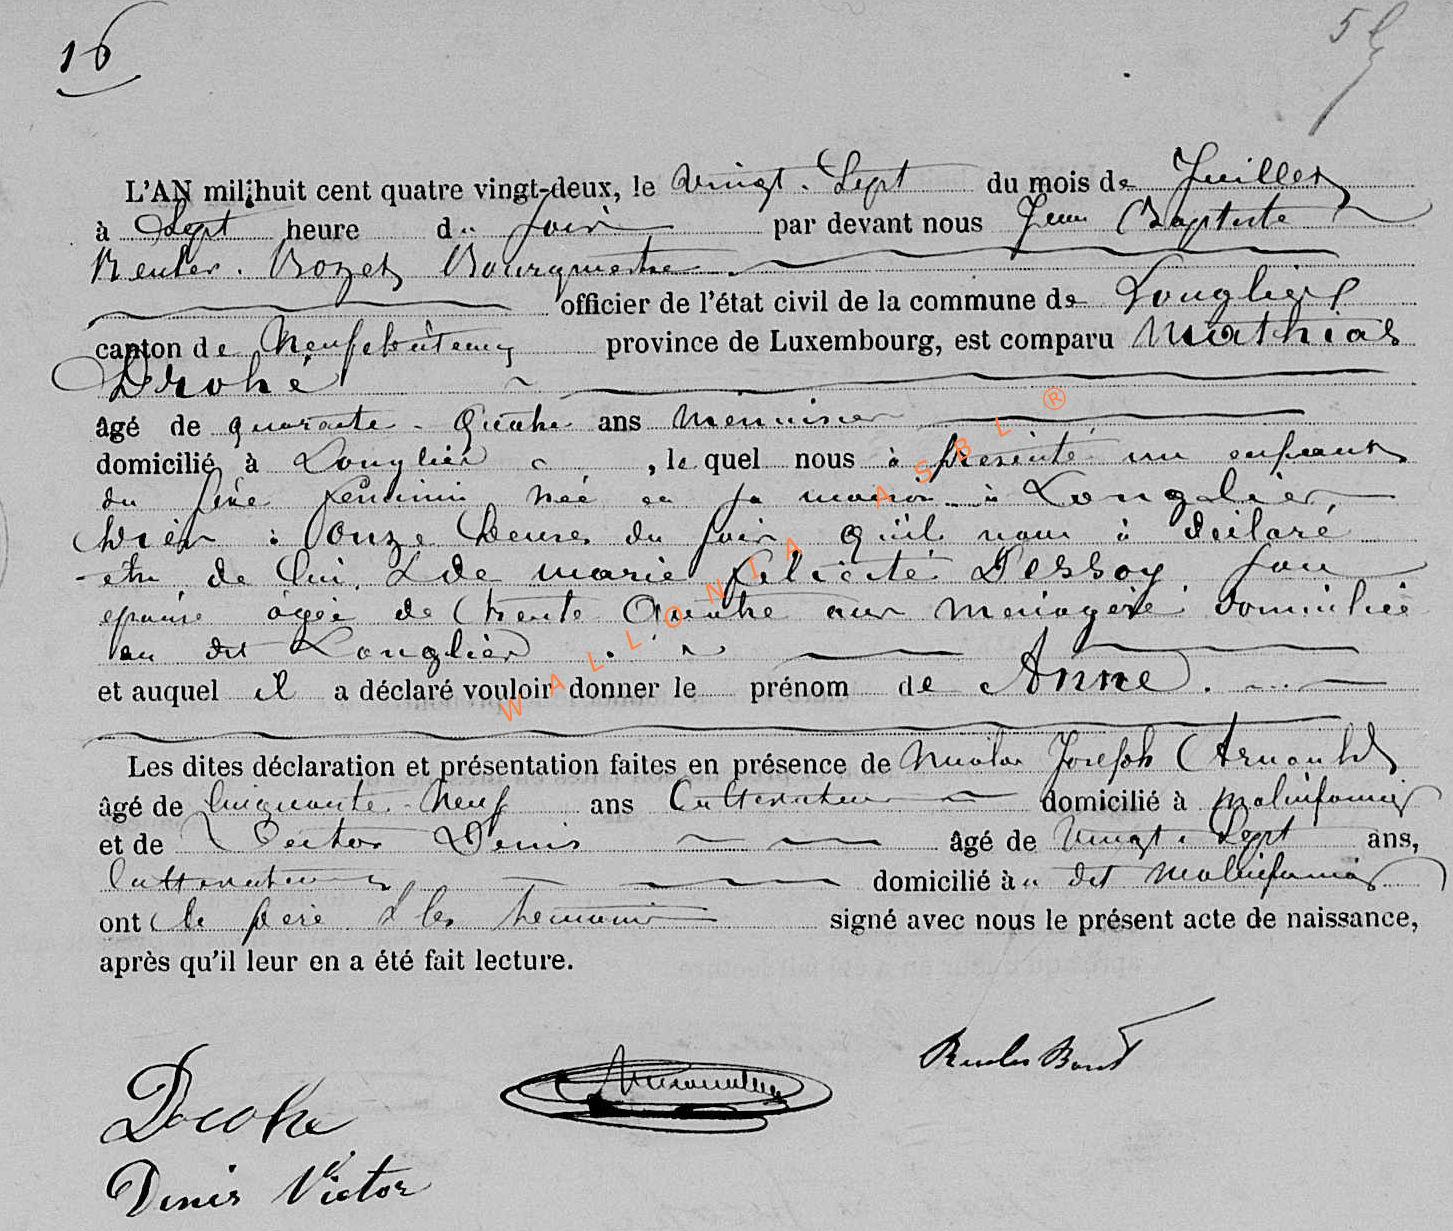 16
L'AN mil huit cent quatre vingt-deux, le Vingt-Sept du mois de Juillet
à Sept heure du soir par devant nous Jean Baptiste
Reuler-Bozet Bourgmestre
officier de l'état civil de la commune de Longlier
canton de Neufchâteau province de Luxembourg, est comparu Mathias
Drohé
âgé de quarante-quatre ans menuisier
domicilié à Longlier, le quel nous à présenté un enfant
du sexe féminin née en sa maison à Longlier
hier à onze heures du soir qu'il nous à déclaré
etre de lui & de marie félicité Dessoy, son
epouse âgée de trente quatre ans menagère domiciliée
au dit Longlier
et auquel il a déclaré vouloir donner le prénom de Anne.
Les dites déclaration et présentation faites en présence de Nicolas Joseph Arnould
âgé de cinquante-neuf ans Cultivateur domicilié à
et de Victor Denis âgé de vingt-sept ans,
Cultivateur domicilié à u dit
ont le père & les témoins signé avec nous le présent acte de naissance,
après qu'il leur en a été fait lecture.
Drohé
Denis Victor
WALLONIA ASBL ®